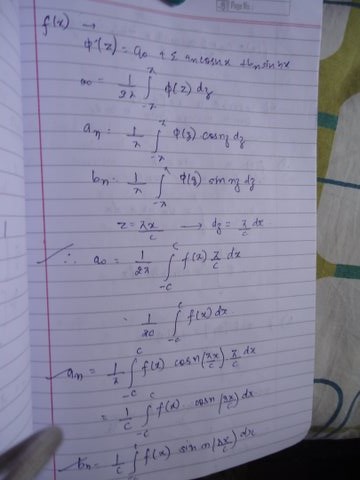 f(x) →
φ(z) = a₀ + Σ aₙ cosnx + bₙ sin nx
a₀ = 1/2π ∫_{-π}^{π} φ(z) dz
aₙ = 1/π ∫_{-π}^{π} φ(z) cosnz dz
bₙ = 1/π ∫_{-π}^{π} φ(z) sin nz dz
z = πx/c → dz = π/c dx
∴ a₀ = 1/2π ∫_{-c}^{c} f(x) π/c dx
= 1/2c ∫_{-c}^{c} f(x) dx
aₙ = 1/π ∫_{-c}^{c} f(x) cos n(πx/c) π/c dx
= 1/c ∫_{-c}^{c} f(x) cos n(πx/c) dx
bₙ = 1/c ∫_{-c}^{c} f(x) sin n(πx/c) dx